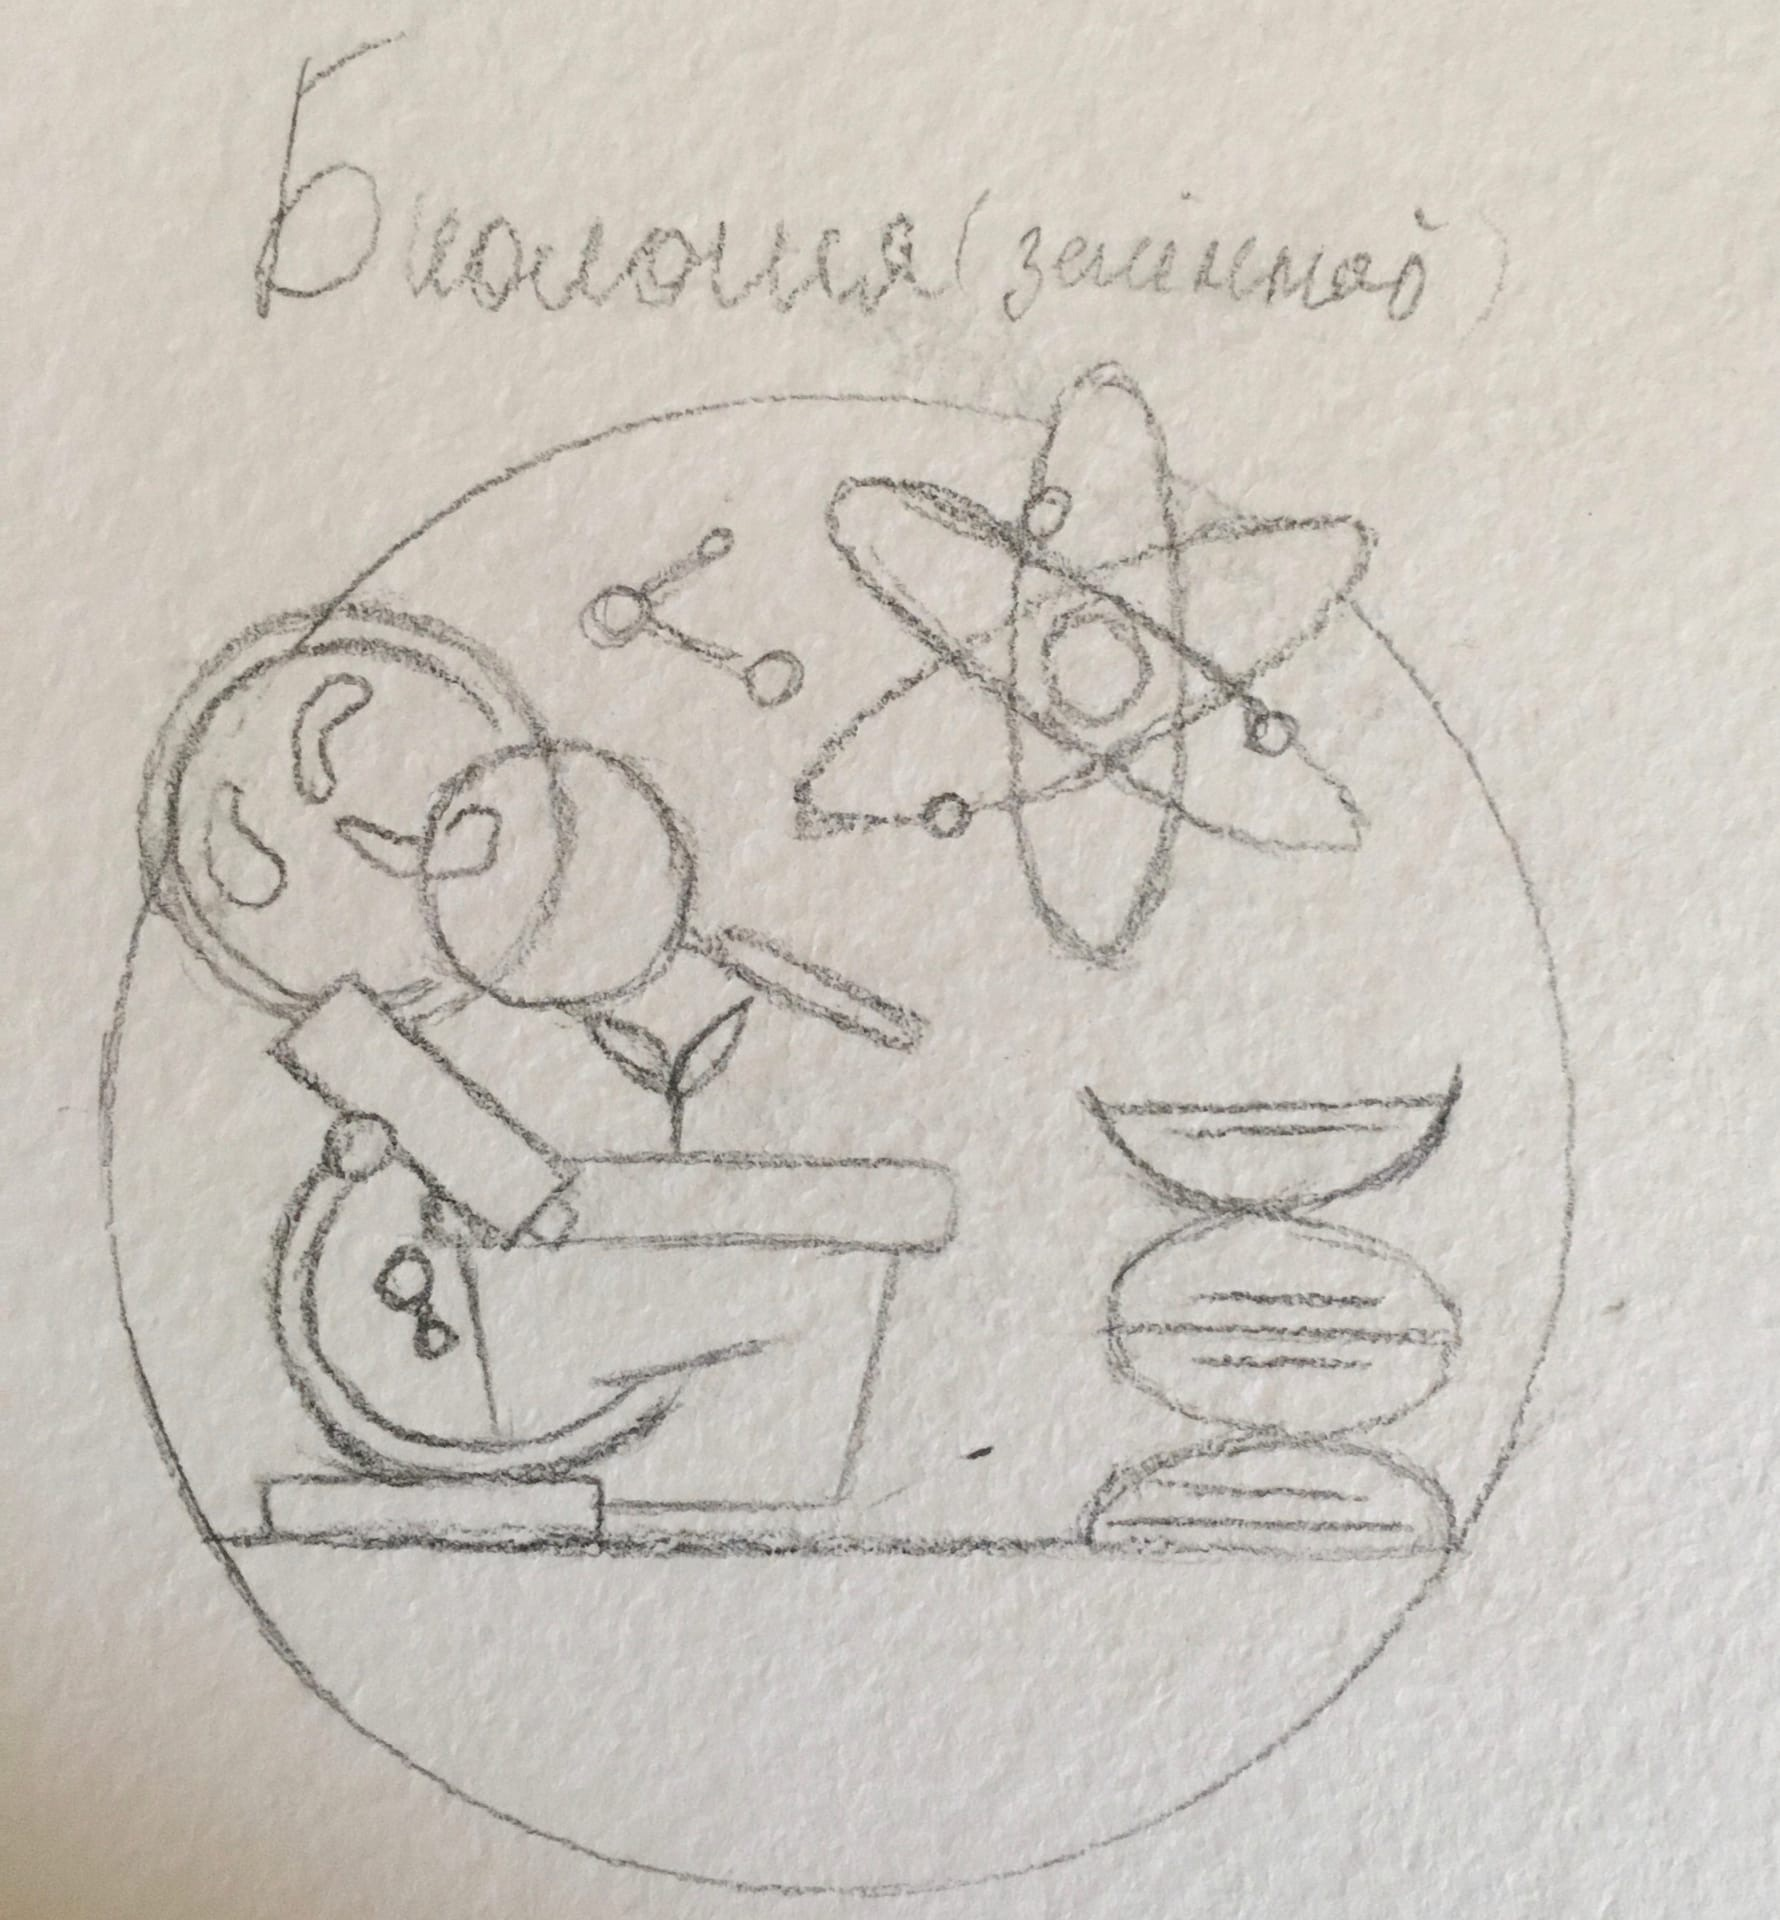 Биология (зелёный)